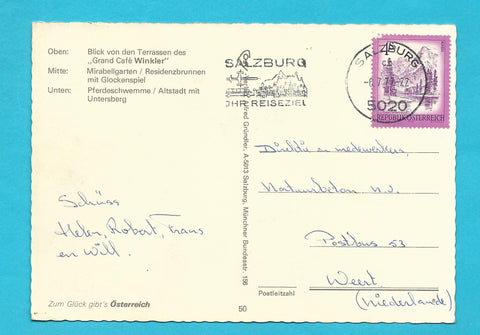 Oben: Blick von den Terrassen des
„Grand Café Winkler"
Mitte: Mirabellgarten / Residenzbrunnen
mit Glockenspiel
Unten: Pferdeschwemme / Altstadt mit
Untersberg
SALZBURG
IHR REISEZIEL
SALZBURG
5020
REPUBLIK ÖSTERREICH
Alfred Gründler, A-5013 Salzburg, Münchner Bundesstr. 156
Schüss
Helen, Robert, Frans
en Will.
Direktie en medewerkers
Natuurbeton n.v.
Postbus 53
Weert
(Niederlande)
Postleitzahl
Zum Glück gibt's Österreich
50